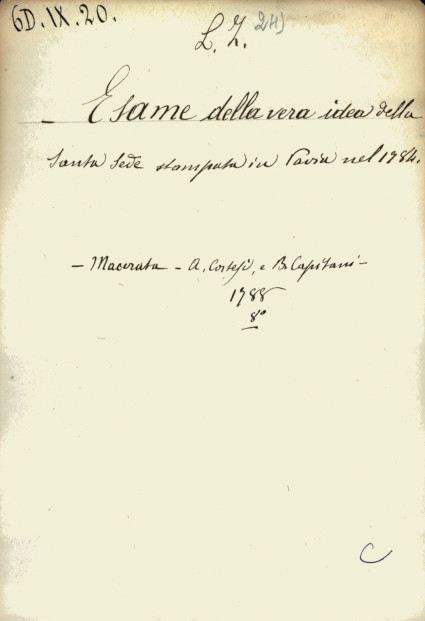 6D.IX.20.
L. Z. 24)
– Esame della vera idea della
Santa Sede stampata in Pavia nel 1784.
– Macerata – A. Cortesi, e B. Capitani –
1788
8º
C